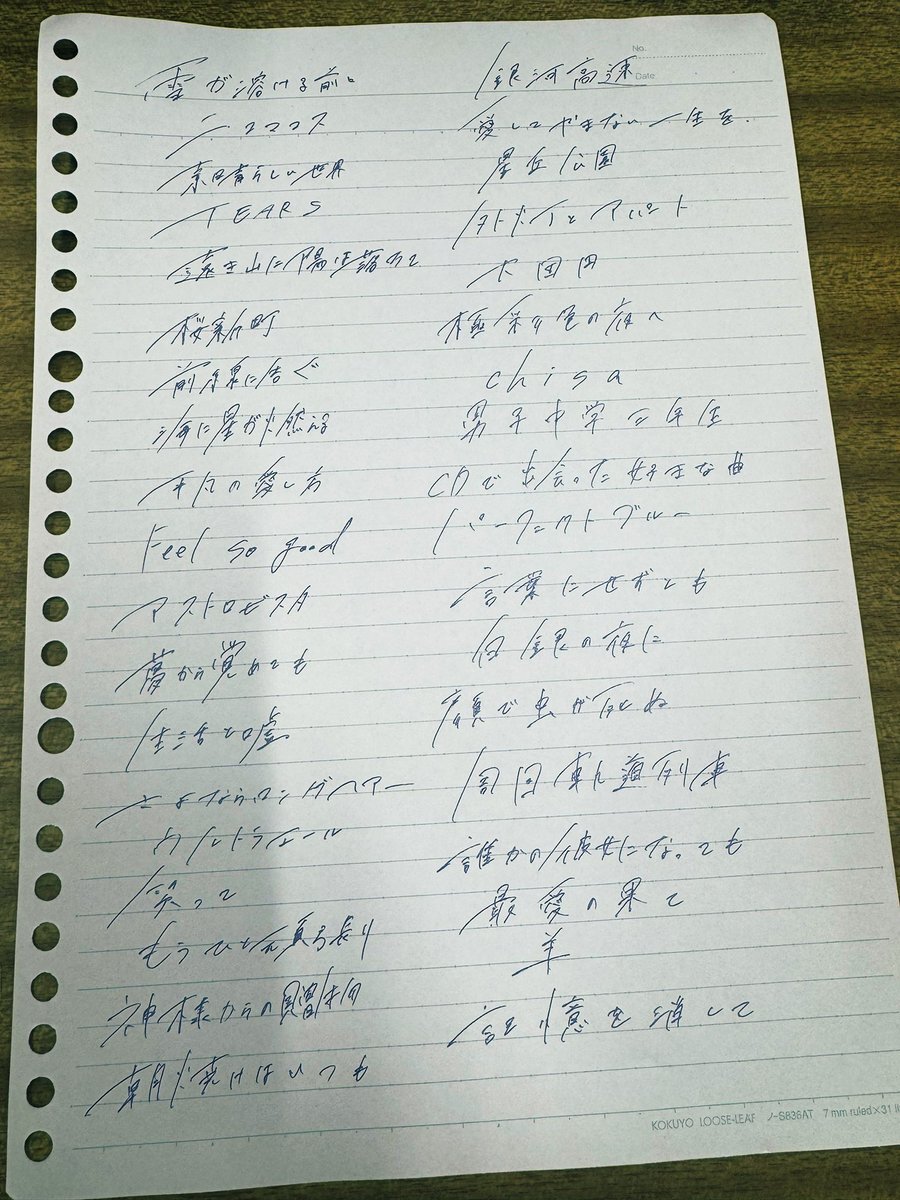 雪が溶ける前に
素晴らしい世界
TEARS
遠き山に陽は落ちて
桜新町
前線に告ぐ
海に星が燃える
の愛し方
Feel so good
アストロビスタ
夢から覚めても
生活と嘘
さよならロングヘアー
ウルトラエール
笑って
もうひと頑張り
神様からの贈物
朝焼けはいつも
No.
Date
銀河高速
愛してやまない一生を.
星丘公園
とアパート
大団円
極彩色の夜へ
chisa
男子中学二年生
CDで出会った好きな曲
パーフェクトブルー
言葉にせずとも
白銀の夜に
顔で虫が死ぬ
周回軌道列車
誰かの彼女になっても
最愛の果て
羊
記憶を消して
KOKUYO LOOSE-LEAF ノ-S836AT 7 mm ruled×31